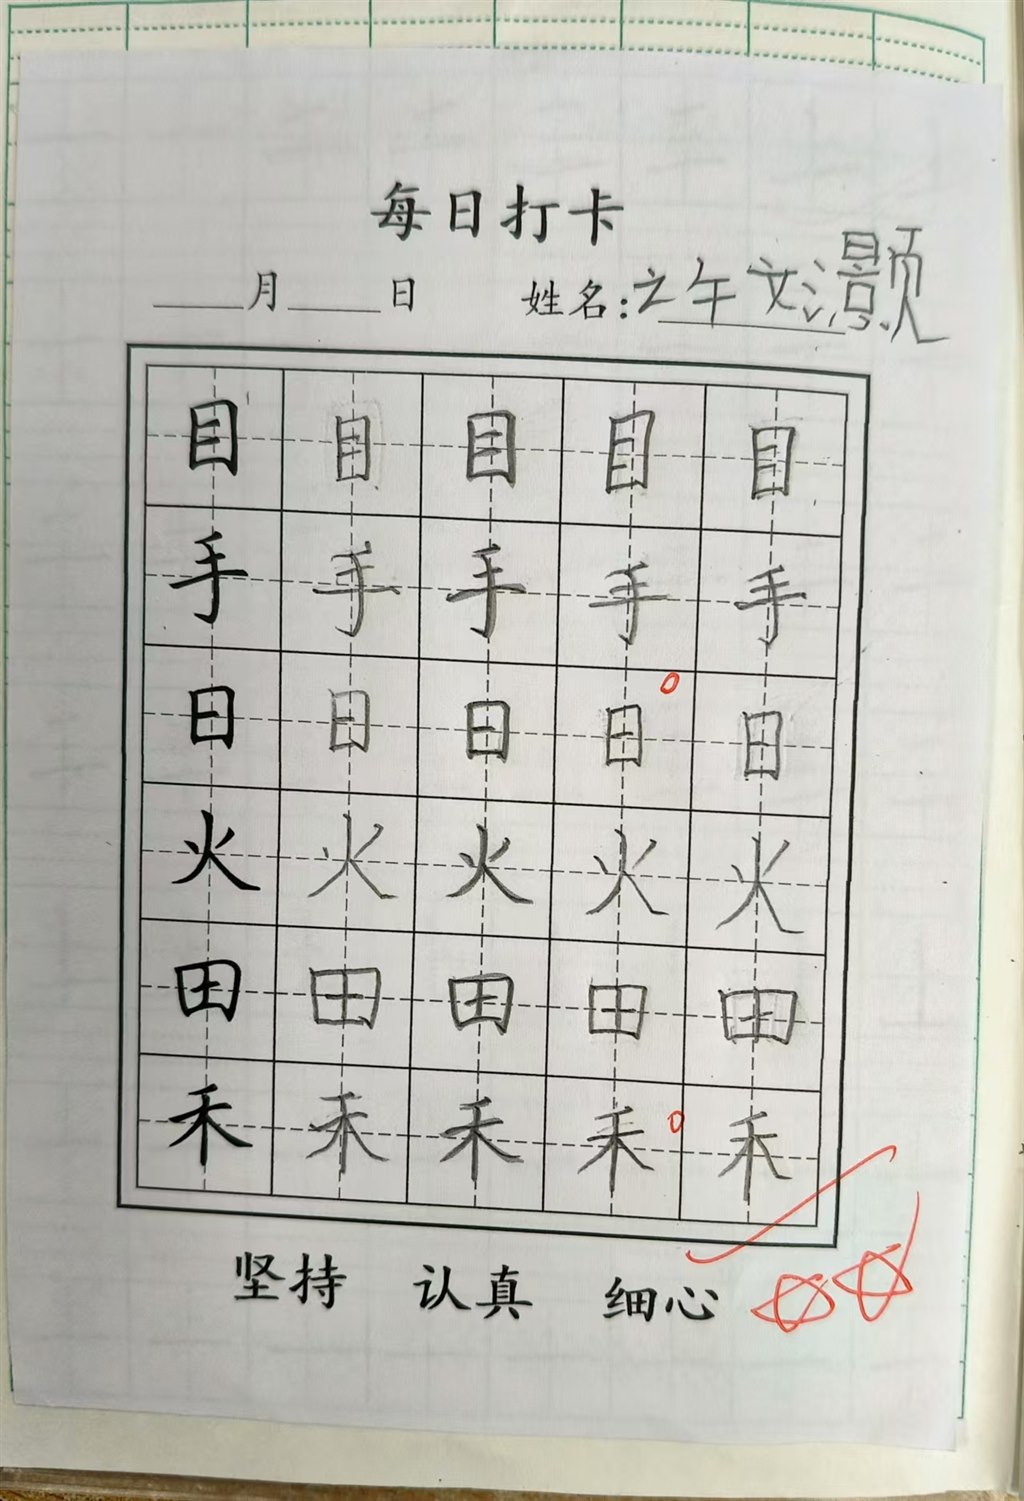 每日打卡
月 日 姓名:
目 目 目 目 目
手 手 手 手 手
日 日 日 日 日
火 火 火 火 火
田 田 田 田 田
禾 禾 禾 禾 禾
坚持 认真 细心